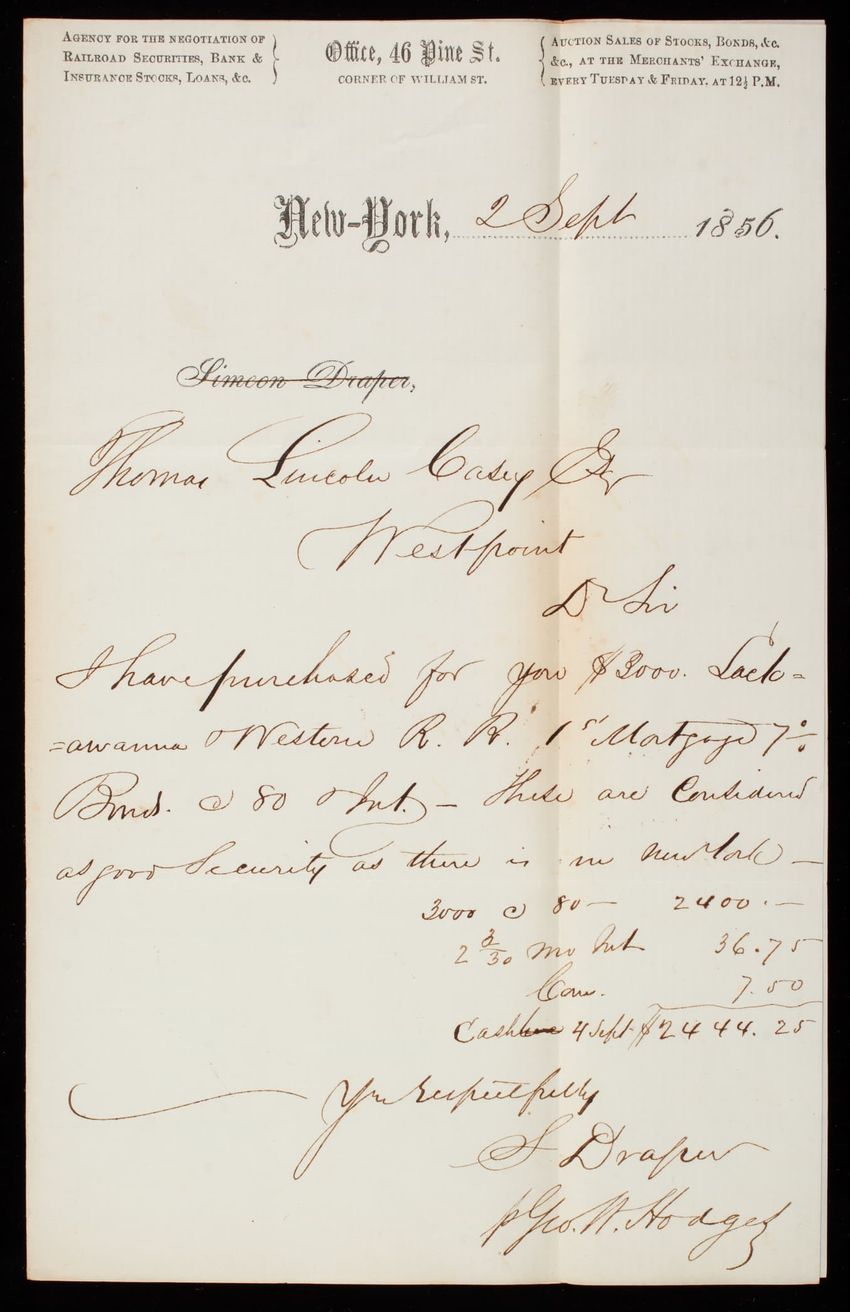 AGENCY FOR THE NEGOTIATION OF
RAILROAD SECURITIES, BANK &
INSURANCE STOCKS, LOANS, &c.
Office, 46 Pine St.
CORNER OF WILLIAM ST.
AUCTION SALES OF STOCKS, BONDS, &c.
&c., AT THE MERCHANTS' EXCHANGE,
EVERY TUESDAY & FRIDAY, AT 12½ P.M.
New-York, 2 Sept 1856.
Simeon Draper,
Thomas Lincoln Casey Esqr
Westpoint
Dr Sir
I have purchased for you $3000. Lack=
=awanna & Western R. R. 1st Mortgage 7%
Bonds. @ 80 & Int. — These are Considered
as good Security as there is in New York —
3000 @ 80 — 2400. —
2 3/30 mo Int 36.75
Com. 7.50
Cash 4 Sept $2444.25
Yrs Respectfully
S Draper
p Geo. W. Hodges